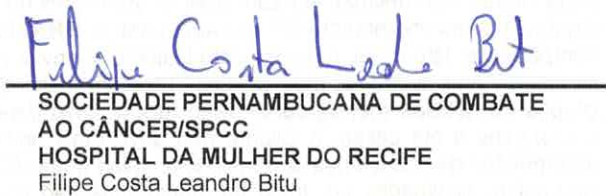 Filipe Costa Leandro Bitu
SOCIEDADE PERNAMBUCANA DE COMBATE
AO CÂNCER/SPCC
HOSPITAL DA MULHER DO RECIFE
Filipe Costa Leandro Bitu